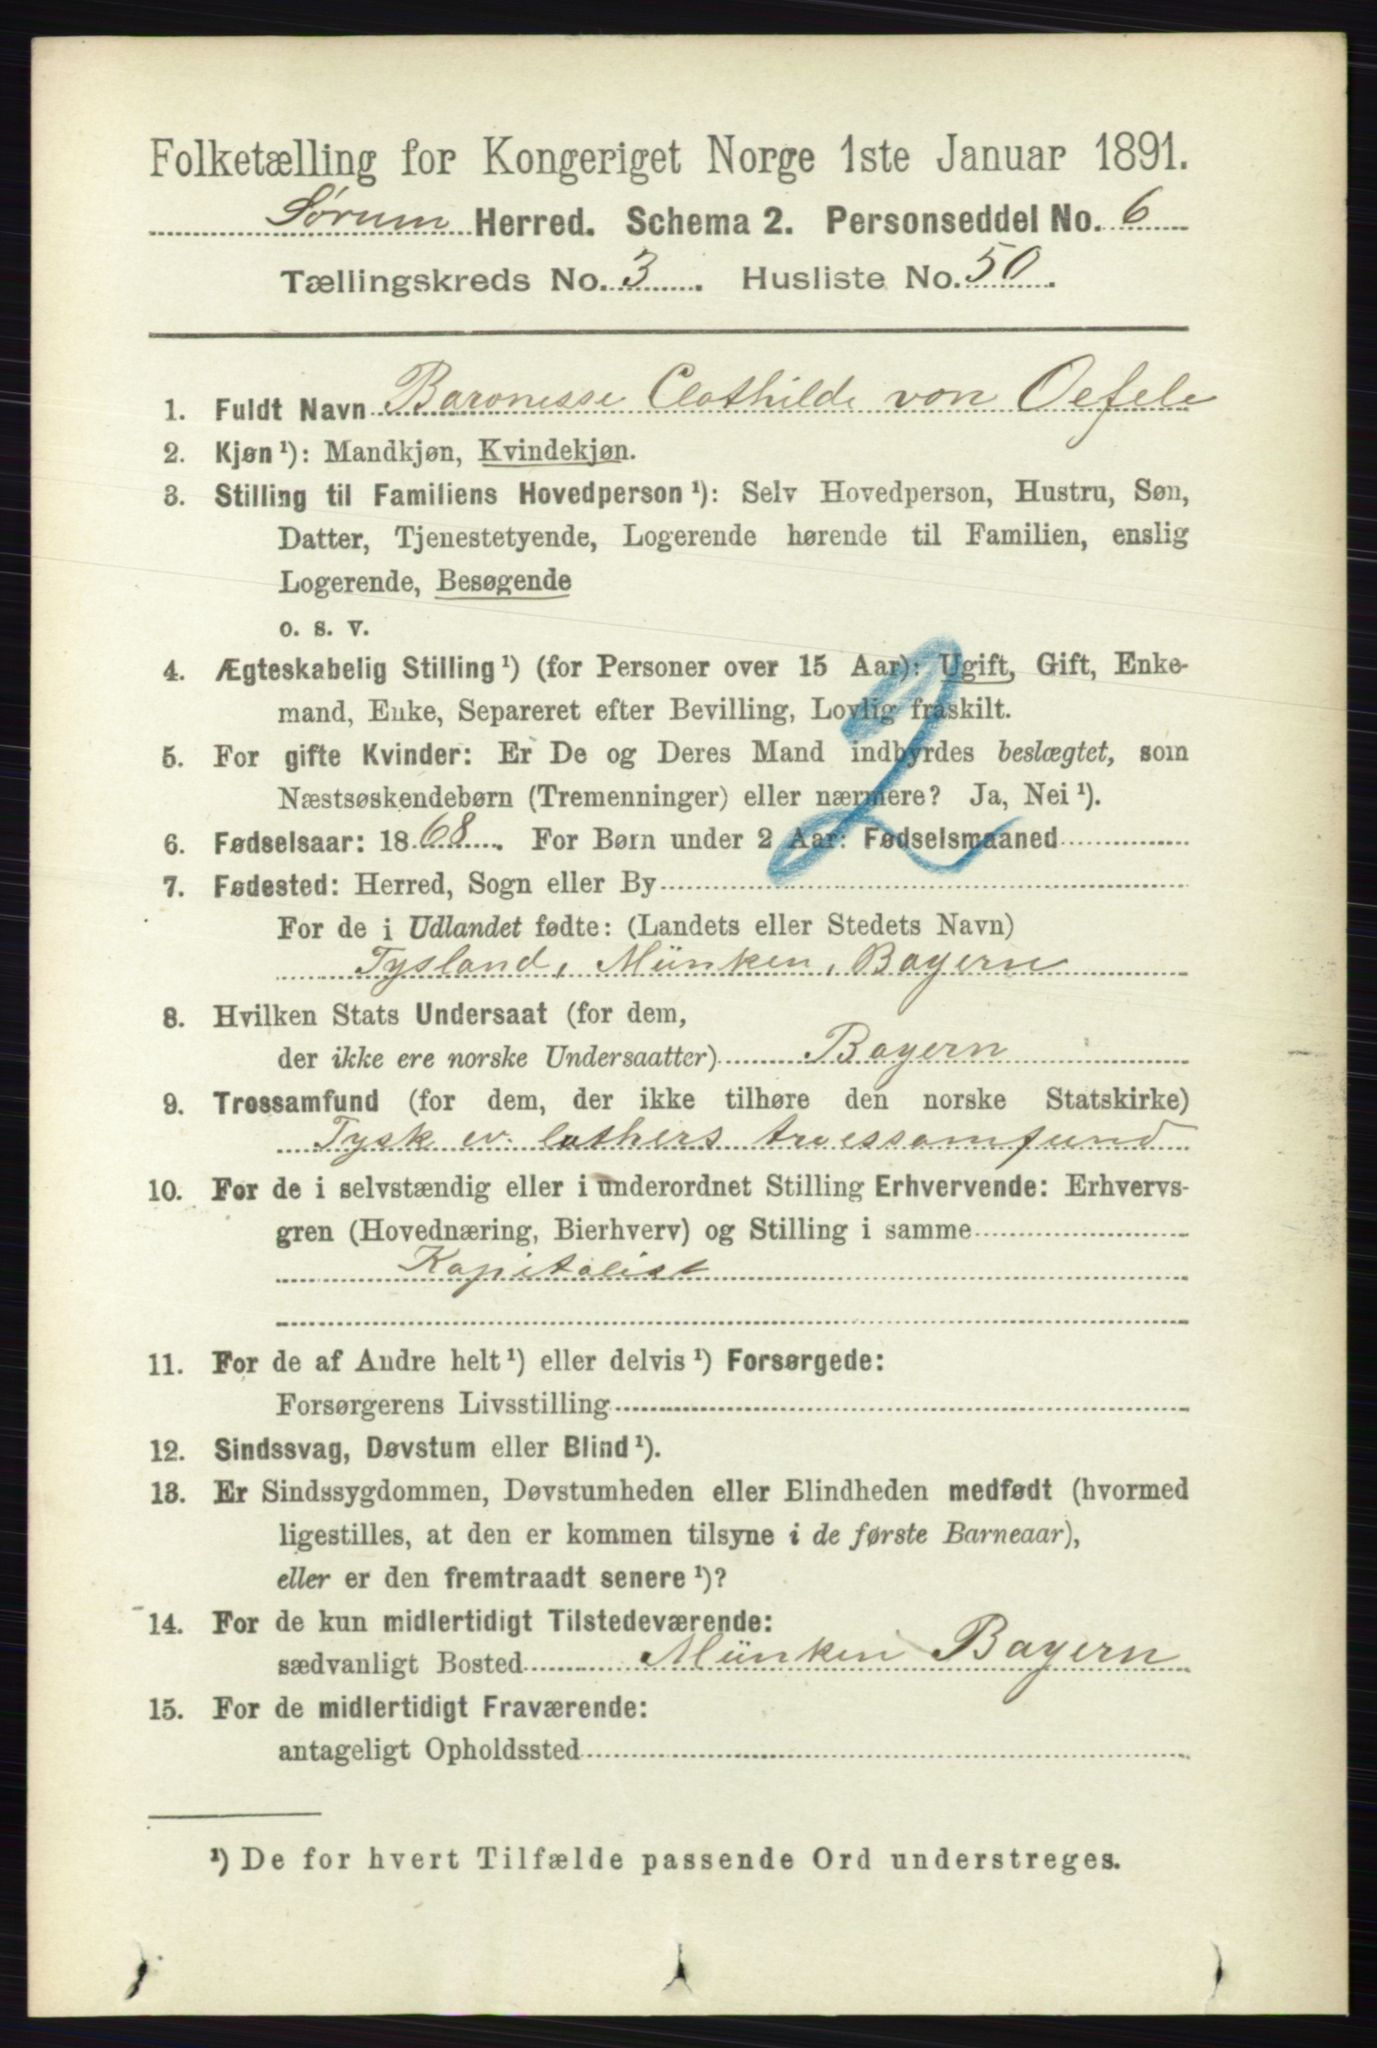 Folketælling for Kongeriget Norge 1ste Januar 1891.
Sørum Herred. Schema 2. Personseddel No. 6
Tællingskreds No. 3. Husliste No. 50.
1. Fuldt Navn Baronesse Clothilde von Oefele
2. Kjøn¹): Mandkjøn, Kvindekjøn.
3. Stilling til Familiens Hovedperson¹): Selv Hovedperson, Hustru, Søn,
Datter, Tjenestetyende, Logerende hørende til Familien, enslig
Logerende, Besøgende
o. s. v.
4. Ægteskabelig Stilling¹) (for Personer over 15 Aar): Ugift, Gift, Enke-
mand, Enke, Separeret efter Bevilling, Lovlig fraskilt.
2
5. For gifte Kvinder: Er De og Deres Mand indbyrdes beslægtet, som
Næstsøskendebørn (Tremenninger) eller nærmere? Ja, Nei¹).
6. Fødselsaar: 1868. For Børn under 2 Aar: Fødselsmaaned
7. Fødested: Herred, Sogn eller By
For de i Udlandet fødte: (Landets eller Stedets Navn)
Tysland, Münken, Bayern
8. Hvilken Stats Undersaat (for dem,
der ikke ere norske Undersaatter) Bayern
9. Trossamfund (for dem, der ikke tilhøre den norske Statskirke)
Tysk ev. luthers troessamfund
10. For de i selvstændig eller i underordnet Stilling Erhvervende: Erhvervs-
gren (Hovednæring, Bierhverv) og Stilling i samme
Kapitalist
11. For de af Andre helt¹) eller delvis¹) Forsørgede:
Forsørgerens Livsstilling
12. Sindssvag, Døvstum eller Blind¹).
13. Er Sindssygdommen, Døvstumheden eller Blindheden medfødt (hvormed
ligestilles, at den er kommen tilsyne i de første Barneaar),
eller er den fremtraadt senere¹)?
14. For de kun midlertidigt Tilstedeværende:
sædvanligt Bosted Münken Bayern
15. For de midlertidigt Fraværende:
antageligt Opholdssted
¹) De for hvert Tilfælde passende Ord understreges.